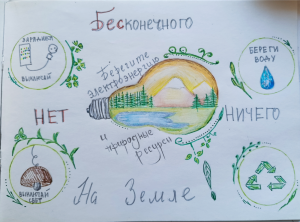 Бесконечного
ЗАРЯДИЛ
ВЫКЛЮЧАЙ
Берегите
электроэнергию
БЕРЕГИ
ВОДУ
НЕТ
НИЧЕГО
и
природные
ресурсы
ВЫКЛЮЧАЙ
СВЕТ
На Земле